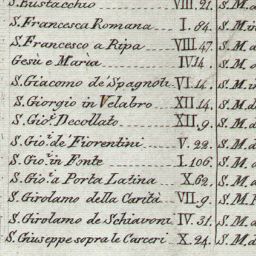 S. Eustacchio VIII. 21.
S. Francesca Romana I. 84. S. M. in
S. Francesco a Ripa VIII. 47. S. M. d
Gesù e Maria IV. 14 S. M. a
S. Giacomo de' Spagnoli VI. 14. S. M. i
S. Giorgio in Velabro XII. 14. S. M. d
S. Gio. Decollato XII. 9. S. M. d
S. Gio. de' Fiorentini V. 22. S. M. d
S. Gio. in Fonte I. 106. S. M. a
S. Gio. a Porta Latina X. 62. S. M. d
S. Girolamo della Carità VII. 9. S. M. R
S. Girolamo de Schiavoni IV. 31. S. M. d
S. Giuseppe sopra le Carceri X. 24. S. M. d